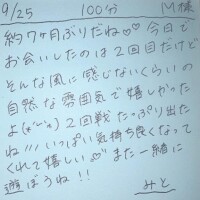 9/25 100分 M様
約7ヶ月ぶりだね♡♡ 今日で
お会いしたのは2回目だけど
そんな風に感じないくらいの
自然な雰囲気で嬉しかった
よ(*´ω`*) 2回戦たっぷり出た
ね!!! いっぱい気持ち良くなって
くれて嬉しい♡ また一緒に
遊ぼうね!!
みと